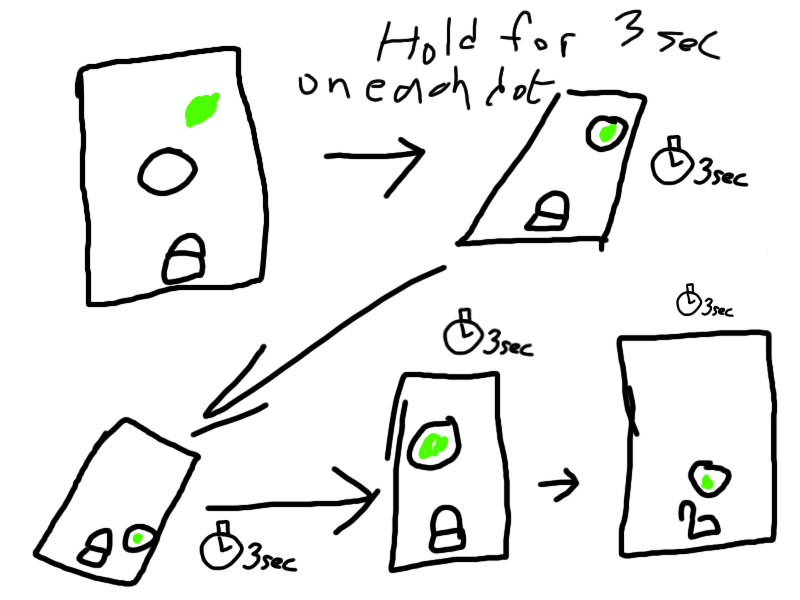 Hold for 3 sec
on each dot
3sec
3sec
3sec
3sec